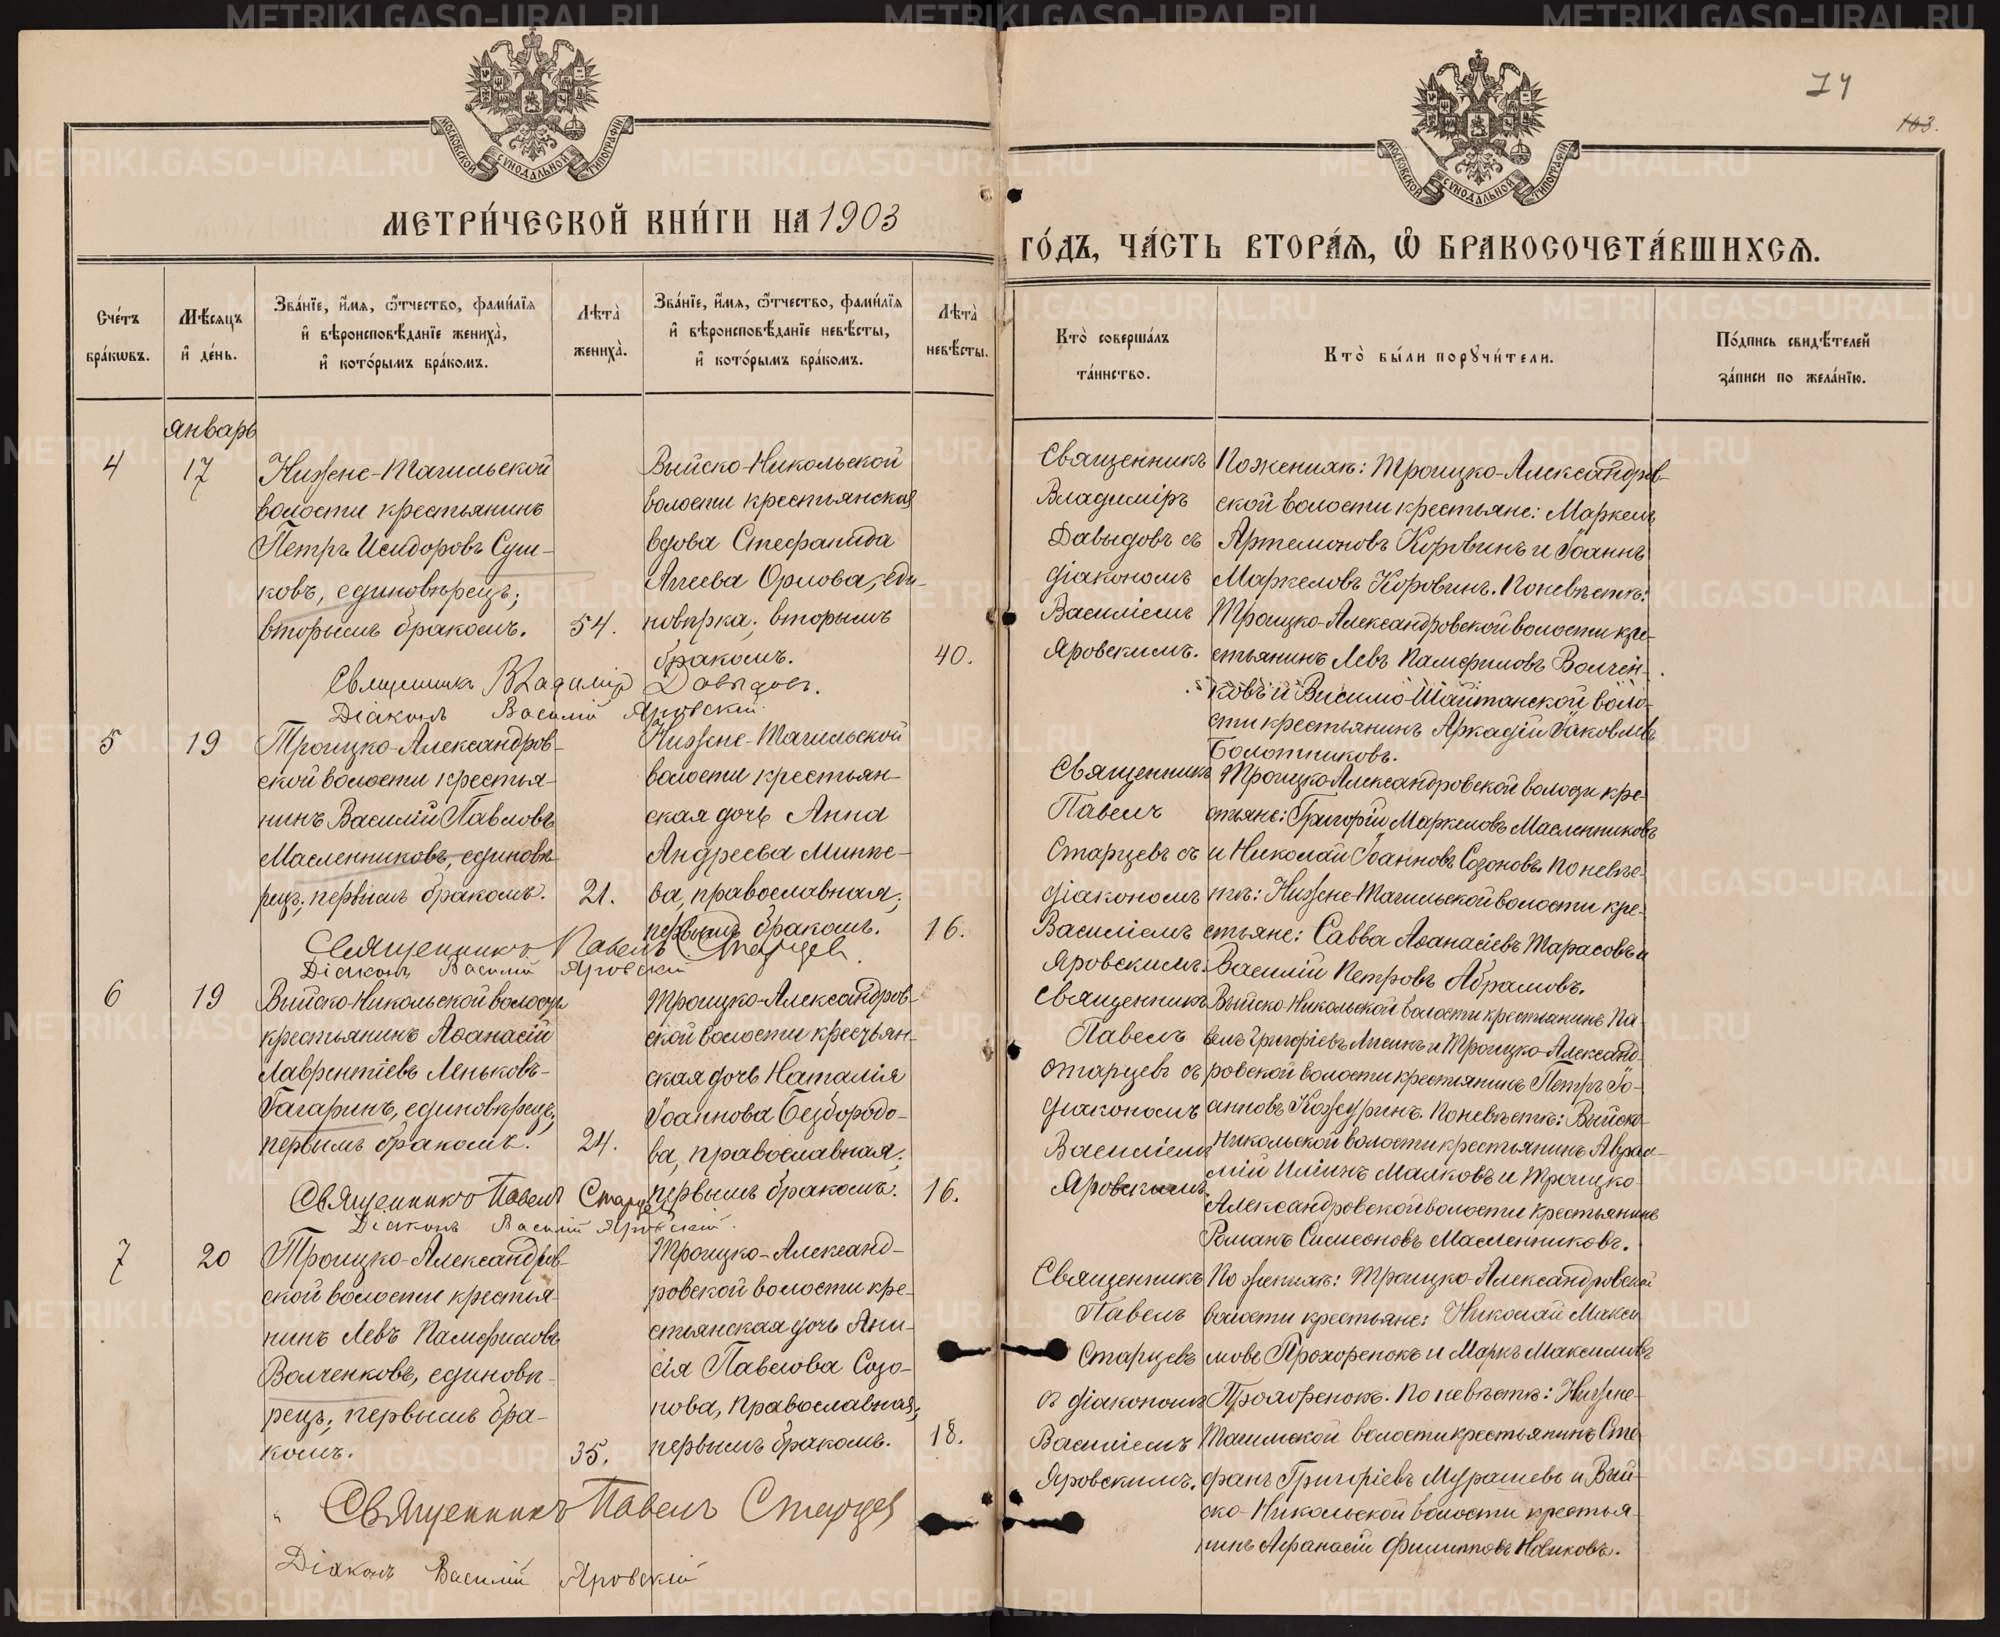 МЕТРИ́ЧЕСКОЙ КНИ́ГИ НА 1903
ГО́ДЪ, ЧА́СТЬ ВТОРА́Ѧ, Ѡ҆ БРАКОСОЧЕТА́ВШИХСѦ.
74
103.
МОСКОВСКОЙ СѴНОДАЛЬНОЙ ТИПОГРАФІИ
МОСКОВСКОЙ СѴНОДАЛЬНОЙ ТИПОГРАФІИ
Сче́тъ бра́кѡвъ.
Мѣ́сѧцъ и҆ де́нь.
Зва́нїе, и҆́мѧ, ѻ҆́тчество, фами́лїѧ и҆ вѣроисповѣ́данїе жениха̀, и҆ кото́рымъ бра́комъ.
Лѣта̀ жениха̀.
Зва́нїе, и҆́мѧ, ѻ҆́тчество, фами́лїѧ и҆ вѣроисповѣ́данїе невѣ́сты, и҆ кото́рымъ бра́комъ.
Лѣта̀ невѣ́сты.
Кто̀ соверша́лъ та́инство.
Кто̀ бы́ли порꙋчи́тели.
По́дпись свидѣ́телей за́писи по жела́нїю.
январь
4
17
Нижне-Тагильской
волости крестьянинъ
Петръ Исидоровъ Суш-
ковъ, единовѣрецъ;
вторымъ бракомъ.
54.
Выйско-Никольской
волости крестьянская
вдова Стефанида
Агеева Орлова, еди-
новѣрка; вторымъ
бракомъ.
40.
Священникъ
Владиміръ
Давыдовъ съ
діакономъ
Василіемъ
Яровскимъ.
По женихѣ: Троицко-Александров-
ской волости крестьяне: Маркелъ
Артемоновъ Коровинъ и Іоаннъ
Маркеловъ Коровинъ. По невѣстѣ:
Троицко-Александровской волости кре-
стьянинъ Левъ Памфиловъ Волчен-
ковъ и Висимо-Шайтанской воло-
сти крестьянинъ Аркадій Іаковлевъ
Болотниковъ.
Священникъ Владимір Давыдовъ.
Діаконъ Василій Яровскій
5
19
Троицко-Александров-
ской волости крестья-
нинъ Василій Павловъ
Масленниковъ, единовѣ-
рецъ; первымъ бракомъ.
21.
Нижне-Тагильской
волости крестьян-
ская дочь Анна
Андреева Минѣе-
ва, православная;
первымъ бракомъ.
16.
Священникъ
Павелъ
Старцевъ съ
діакономъ
Василіемъ
Яровскимъ.
Троицко-Александровской волости кре-
стьяне: Григорій Маркеловъ Масленниковъ
и Николай Іоанновъ Созоновъ. По невѣс-
тѣ: Нижне-Тагильской волости кре-
стьяне: Савва Аѳанасіевъ Тарасовъ и
Василій Петровъ Абрамовъ.
Священникъ Павелъ Старцев.
Діаконъ Василій Яровскій
6
19
Выйско-Никольской волости
крестьянинъ Аѳанасій
Лаврентіевъ Леньковъ-
Гагаринъ, единовѣрецъ;
первымъ бракомъ.
24.
Троицко-Александров-
ской волости крестьян-
ская дочь Наталія
Іоаннова Безбородо-
ва, православная;
первымъ бракомъ.
16.
Священникъ
Павелъ
Старцевъ съ
діакономъ
Василіемъ
Яровскимъ.
Выйско-Никольской волости крестьянинъ Па-
велъ Григоріевъ Лисинъ и Троицко-Александ-
ровской волости крестьянинъ Петръ Іо-
анновъ Кожеуринъ. По невѣстѣ: Выйско-
Никольской волости крестьянинъ Авраа-
мій Иліинъ Малковъ и Троицко-
Александровской волости крестьянинъ
Романъ Симеоновъ Масленниковъ.
Священникъ Павелъ Старцев
Діаконъ Василій Яровскій.
7
20
Троицко-Александров-
ской волости крестья-
нинъ Левъ Памфиловъ
Волченковъ, единовѣ-
рецъ; первымъ бра-
комъ.
35.
Троицко-Александ-
ровской волости кре-
стьянская дочь Ани-
сія Павлова Созо-
нова, православная;
первымъ бракомъ.
18.
Священникъ
Павелъ
Старцевъ
съ діакономъ
Василіемъ
Яровскимъ.
По женихѣ: Троицко-Александровской
волости крестьяне: Николай Макси-
мовъ Прохоренокъ и Маркъ Максимовъ
Прохоренокъ. По невѣстѣ: Нижне-
Тагильской волости крестьянинъ Сте-
фанъ Григоріевъ Мурашевъ и Вый-
ско-Никольской волости крестья-
нинъ Афанасій Филипповъ Новиковъ.
Священникъ Павелъ Старцев
Діаконъ Василій Яровскій
METRIKI.GASO-URAL.RU